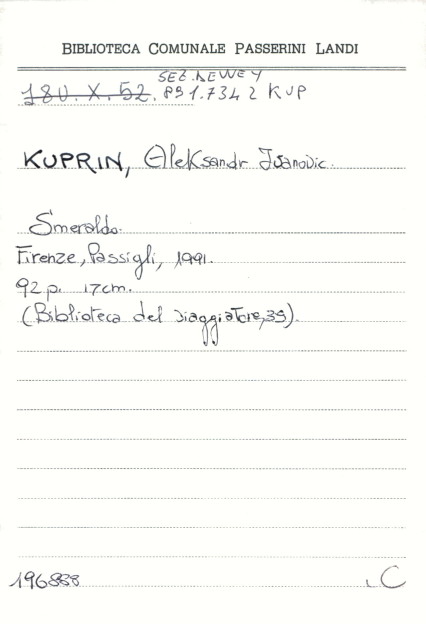 BIBLIOTECA COMUNALE PASSERINI LANDI
SEZ. DEWEY
180. X. 52. 891.734 2 KUP
KUPRIN, Aleksandr Ivanovic.
Smeraldo.
Firenze, Passigli, 1991.
92 p. 17cm.
(Biblioteca del viaggiatore, 39).
196838
C